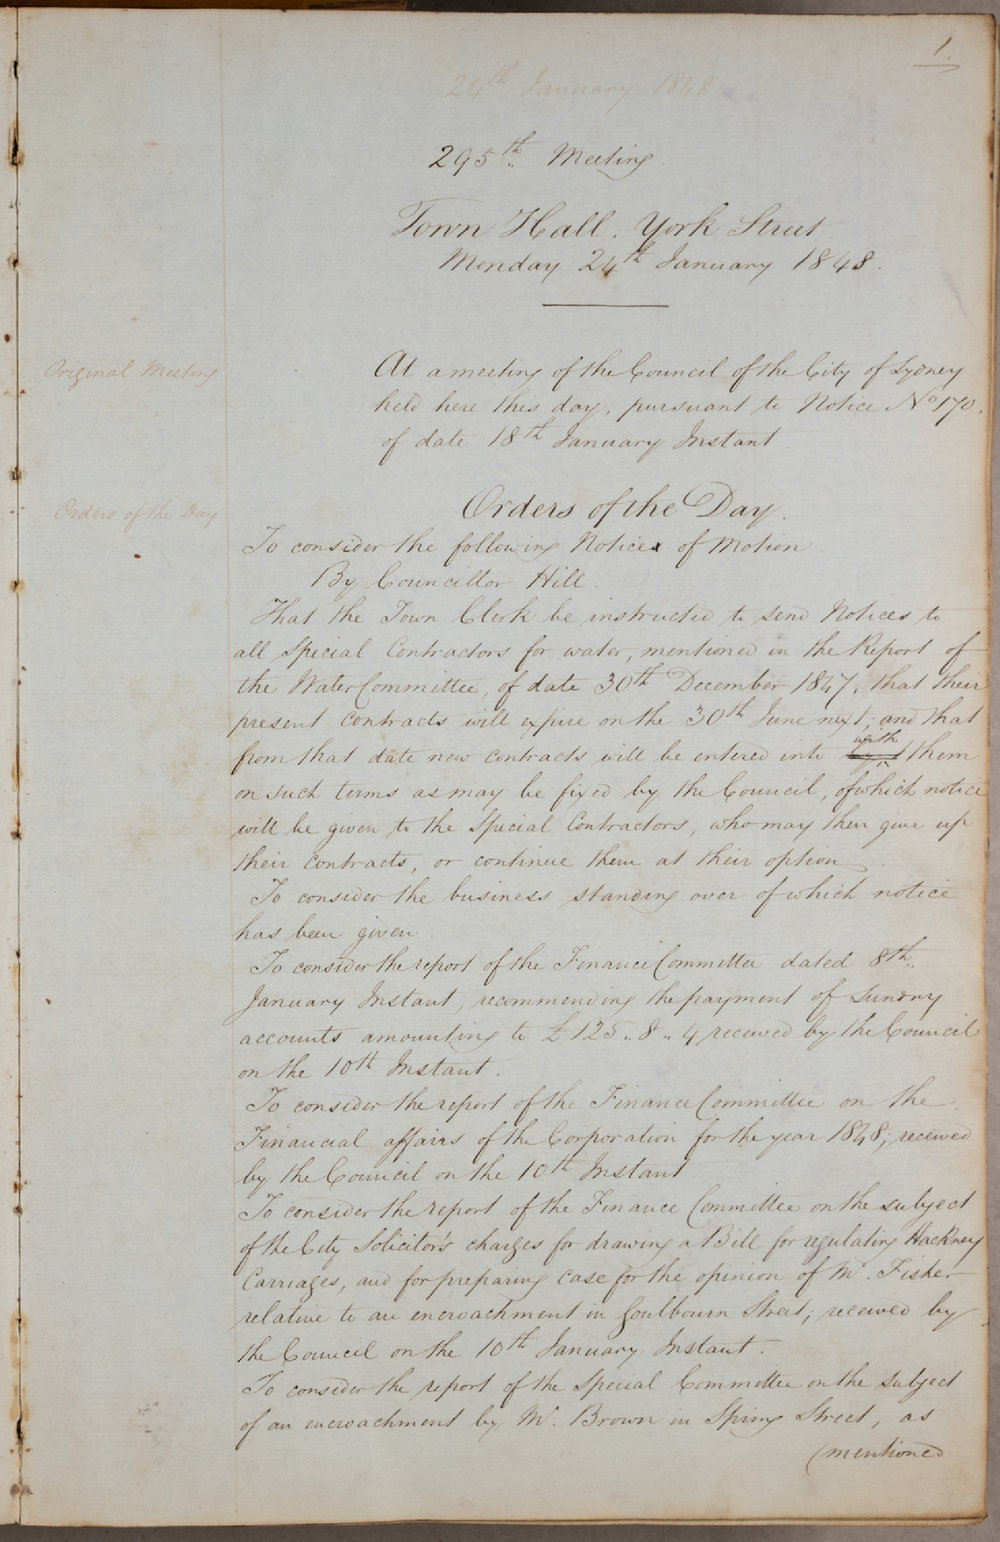 1.
24th January 1848
295th Meeting
Town Hall. York Street
Monday 24th January 1848.
Original Meeting
At a meeting of the Council of the City of Sydney
held here this day, pursuant to Notice No 170.
of date 18th January Instant
Orders of the Day
Orders of the Day.
To consider the following Notice of Motion
By Councillor Hill.
That the Town Clerk be instructed to send Notices to
all Special Contractors for water, mentioned in the Report of
the Water Committee, of date 30th December 1847, that their
present contracts will expire on the 30th June next; and that
with
from that date new contracts will be entered into them
on such terms as may be fixed by the Council, of which notice
will be given to the Special Contractors, who may then give up
their contracts, or continue them at their option.
To consider the business standing over of which notice
has been given
To consider the report of the Finance Committee dated 8th
January Instant, recommending the payment of Sundry
accounts amounting to £125..8..4 received by the Council
on the 10th Instant.
To consider the report of the Finance Committee on the
Financial affairs of the Corporation for the year 1848; received
by the Council on the 10th Instant
To consider the report of the Finance Committee on the subject
of the City Solicitor's charges for drawing a Bill for regulating Hackney
Carriages, and for preparing case for the opinion of Mr. Fisher
relative to an encroachment in Goulbourn Street; received by
the Council on the 10th January Instant.
To consider the report of the Special Committee on the subject
of an encroachment by Mr. Brown in Spring Street, as
(mentioned